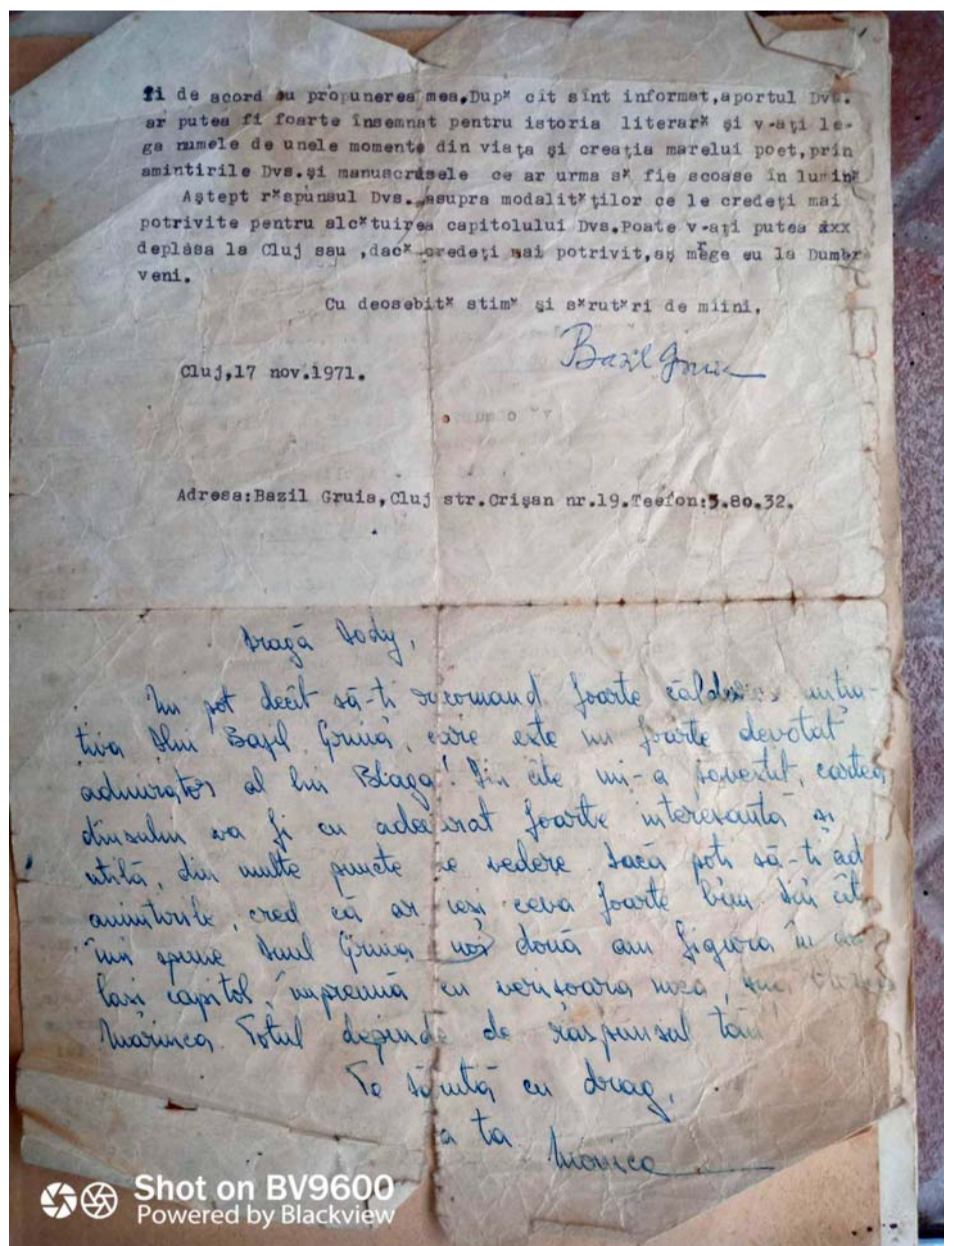 fi de acord cu propunerea mea.Dup* cît sînt informat,aportul Dvs.
ar putea fi foarte însemnat pentru istoria literar* şi v-aţi le-
ga numele de unele momente din viaţa şi creaţia marelui poet,prin
amintirile Dvs.şi manuscrisele ce ar urma s* fie scoase în lumin*
Aştept r*spunsul Dvs. asupra modalit*ţilor ce le credeţi mai
potrivite pentru alc*tuirea capitolului Dvs.Poate v-aţi putea xxx
deplasa la Cluj sau ,dac* credeţi mai potrivit,aş merge eu la Dumbr
veni.
Cu deosebit* stim* şi s*rut*ri de mîini,
Bazil Gruia
Cluj,17 nov.1971.
Adresa:Bazil Gruia,Cluj str.Crişan nr.19.Teefon:5.80.32.
Dragă Dody,
Nu pot decît să-ţi recomand foarte călduros iniţia-
tiva Dlui Bazil Gruia, care este un foarte devotat
admirator al lui Blaga! Din cîte mi-a povestit, cartea
dînsului va fi cu adevărat foarte interesantă şi
utilă, din multe puncte de vedere. Dacă poţi să-ţi ad
amintirile, cred că ar ieşi ceva foarte bun. După cît
îmi spune Dnul Gruia noi două am figura în ace
laşi capitol, împreună cu verişoara mea,
Marinca. Totul depinde de răspunsul tău
Te sărută cu drag,
a ta Monica
Shot on BV9600
Powered by Blackview